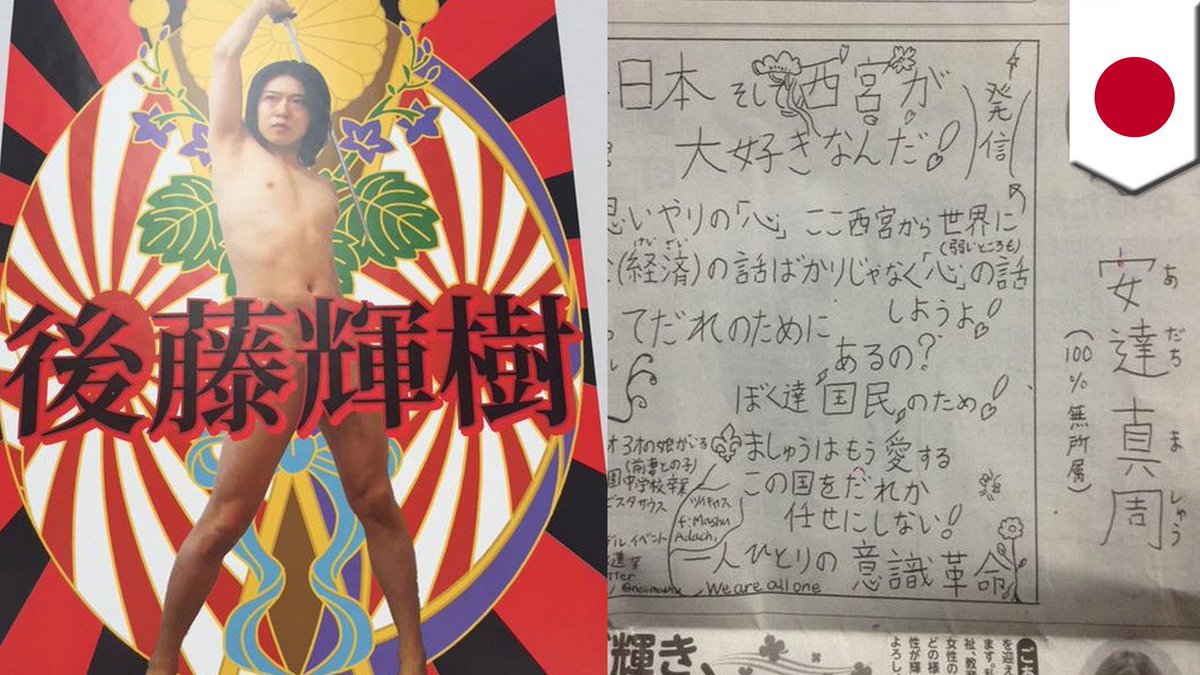 後藤輝樹
日本そして西宮が
大好きなんだ!
発信
思いやりの「心」ここ西宮から世界に
(弱いところも)
けいざい
(経済)の話ばかりじゃなく「心」の話
しようよ!
ってだれのために
あるの?
ぼく達"国民"のため!
3才の娘がいる
(前妻との子)
中学校卒業
ビスタサウス
ツイキャス
f:Mashu
Adach.
イベント
ましゅうはもう愛する
この国をだれか
任せにしない!
一人ひとりの意識革命
We are all one
あだち ましゅう
安達真周
(100%無所属)
輝き、